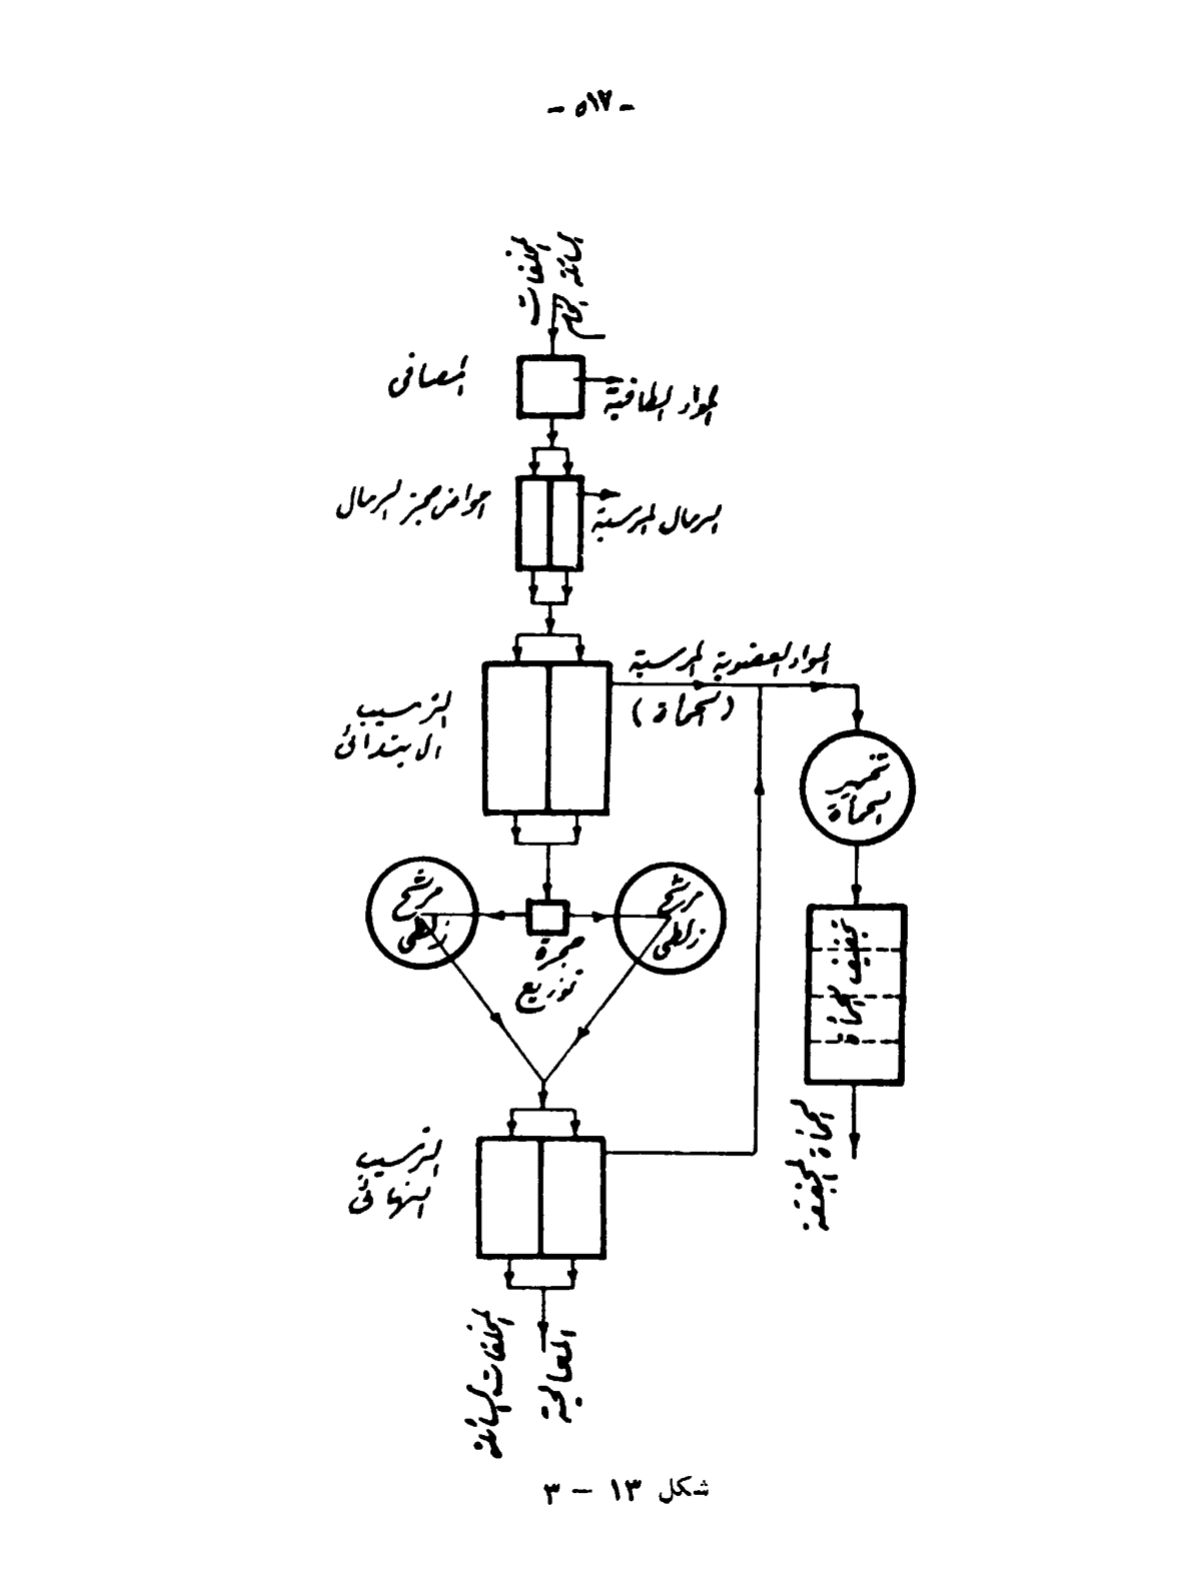 - ٥١٢ -
المخلفات
السائلة الخام
المصافى
المواد الطافية
أحواض حجز الرمال
الرمال المرسبة
المواد العضوية المرسبة
(الحمأة)
الترسيب
الابتدائى
تخمير
الحمأة
مرشح
زلطى
مرشح
زلطى
حجرة
توزيع
تجفيف الحمأة
الترسيب
النهائى
الحمأة المجففة
المخلفات السائلة
المعالجة
شكل ١٣ – ٣